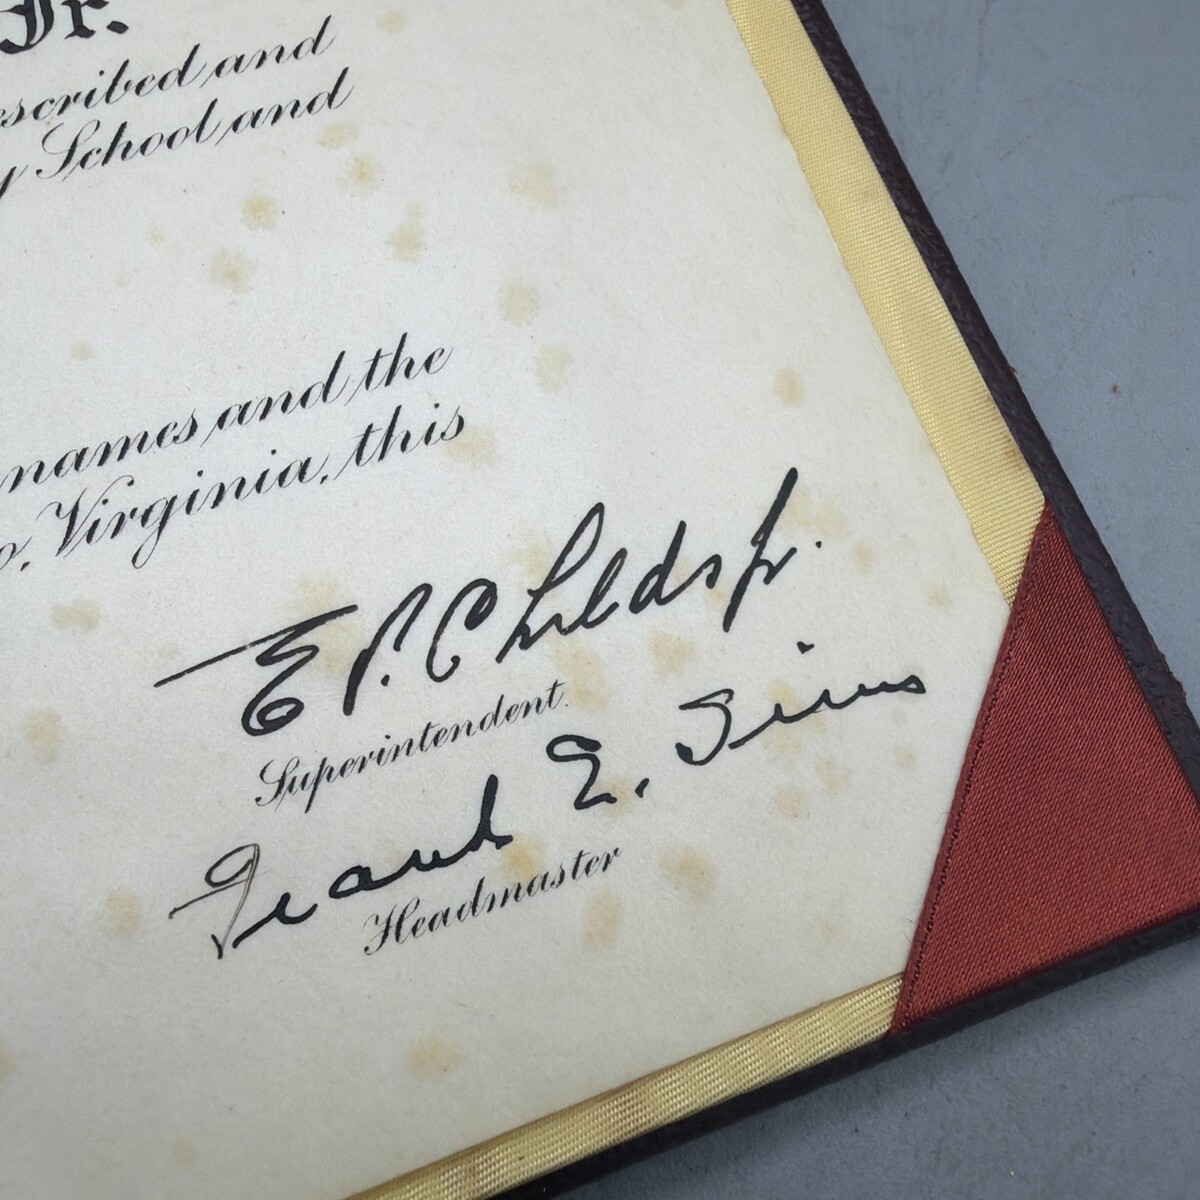 Jr.
escribed and
y School and
names and the
o, Virginia, this
E. P. Childs Jr.
Superintendent.
Frank E. Sims
Headmaster